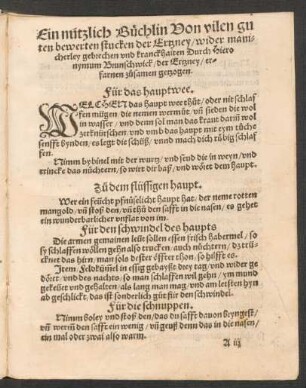 Ein nützlich Büchlin Von vilen gu
ten bewerten stucken der Ertzney/wider man⸗
cherley gebrechen vnd kranckhaiten Durch Hiero
nymum Brunschwick/ der Ertzney/ er⸗
farnen zůsamen gezogen.
Für das hauptwee.
WELCHEN das haupt wee thůt/ oder nit schlaf
fen mügen/ die nemen wermůt/ vñ sieden die wol
in wasser/ vnd denn sol man das kraut darin wol
zerknüschen/ vnd vmb das haupt mit eym tůche
senfft bynden/ es legt die schüß/ vnnd mach dich růbig schlaf
fen.
Nimm bybinel mit der wurtz/ vnd send die in weyn/ vnd
trincke das nůchtern/ so wirt dir baß/ vnd wört dem haupt.
Zů dem flüssigen haupt.
Wer ein feücht pfnüselicht haupt hat/ der neme rotten
mangold/ vñ stoß den/ vñ thů den safft in die nasen/ es gehet
ein wunderbarlicher vnflat von im.
Für den schwindel des haupts
Die armen gemainen leüt sollen essen frisch habermel/ so
sy schlaffen wöllen gehn also trucken/ auch nüchtern/ dz trü⸗
cknet das hirn/ man sols dester öffter thon/ so hilfft es.
Item. Feldkümel in essig gebaysse drey tag/ vnd wider ge
dörrt/ vnd des nachts/ so man schlaffen wil gehn/ ym mund
gekeüet vnd gehalten/ als lang man mag/ vnd am letsten hyn
ab geschlickt/ das ist sonderlich gůt für den schwindel.
Für die schnuppen.
Nimm boley vnd stoß den/ das du safft dauon bryngest/
vñ werm den safft ein wenig/ vñ geuß denn das in die nasen/
ein mal oder zwai also warm.
A iij